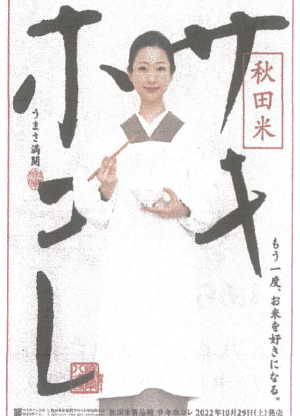 サキホコレ
秋田米
うまさ満開
もう一度、お米を好きになる。
秋田米新品種 サキホコレ 2022年10月29日(土)発売